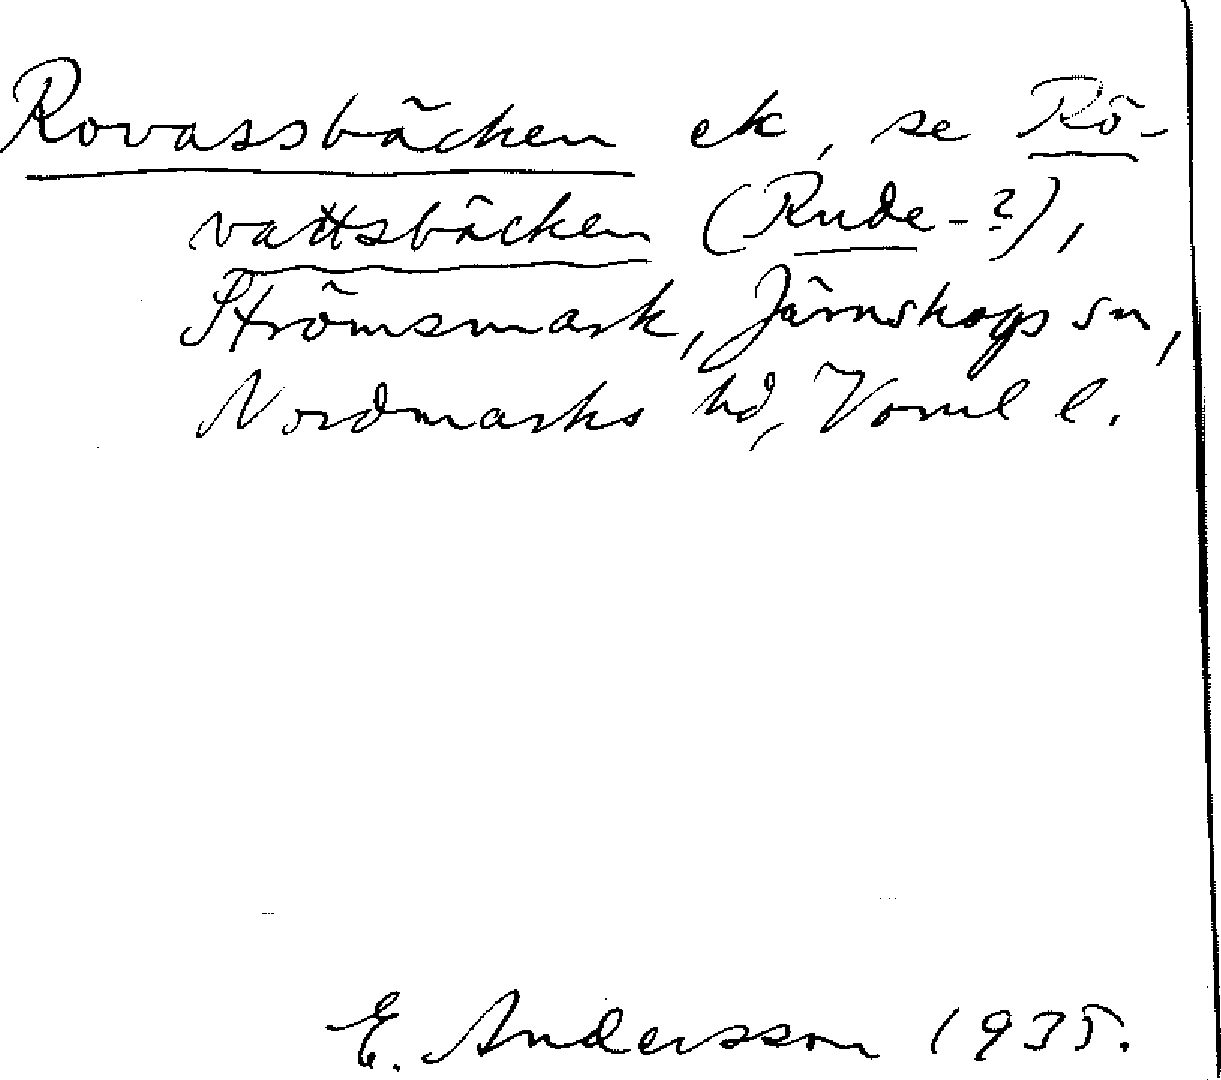 Rovassbäcken ek, se Rö-
vattsbäcken (Rude-?),
Strömsmark, Järnskogs sn,
Nordmarks hd, Värml l.
E. Andersson 1935.